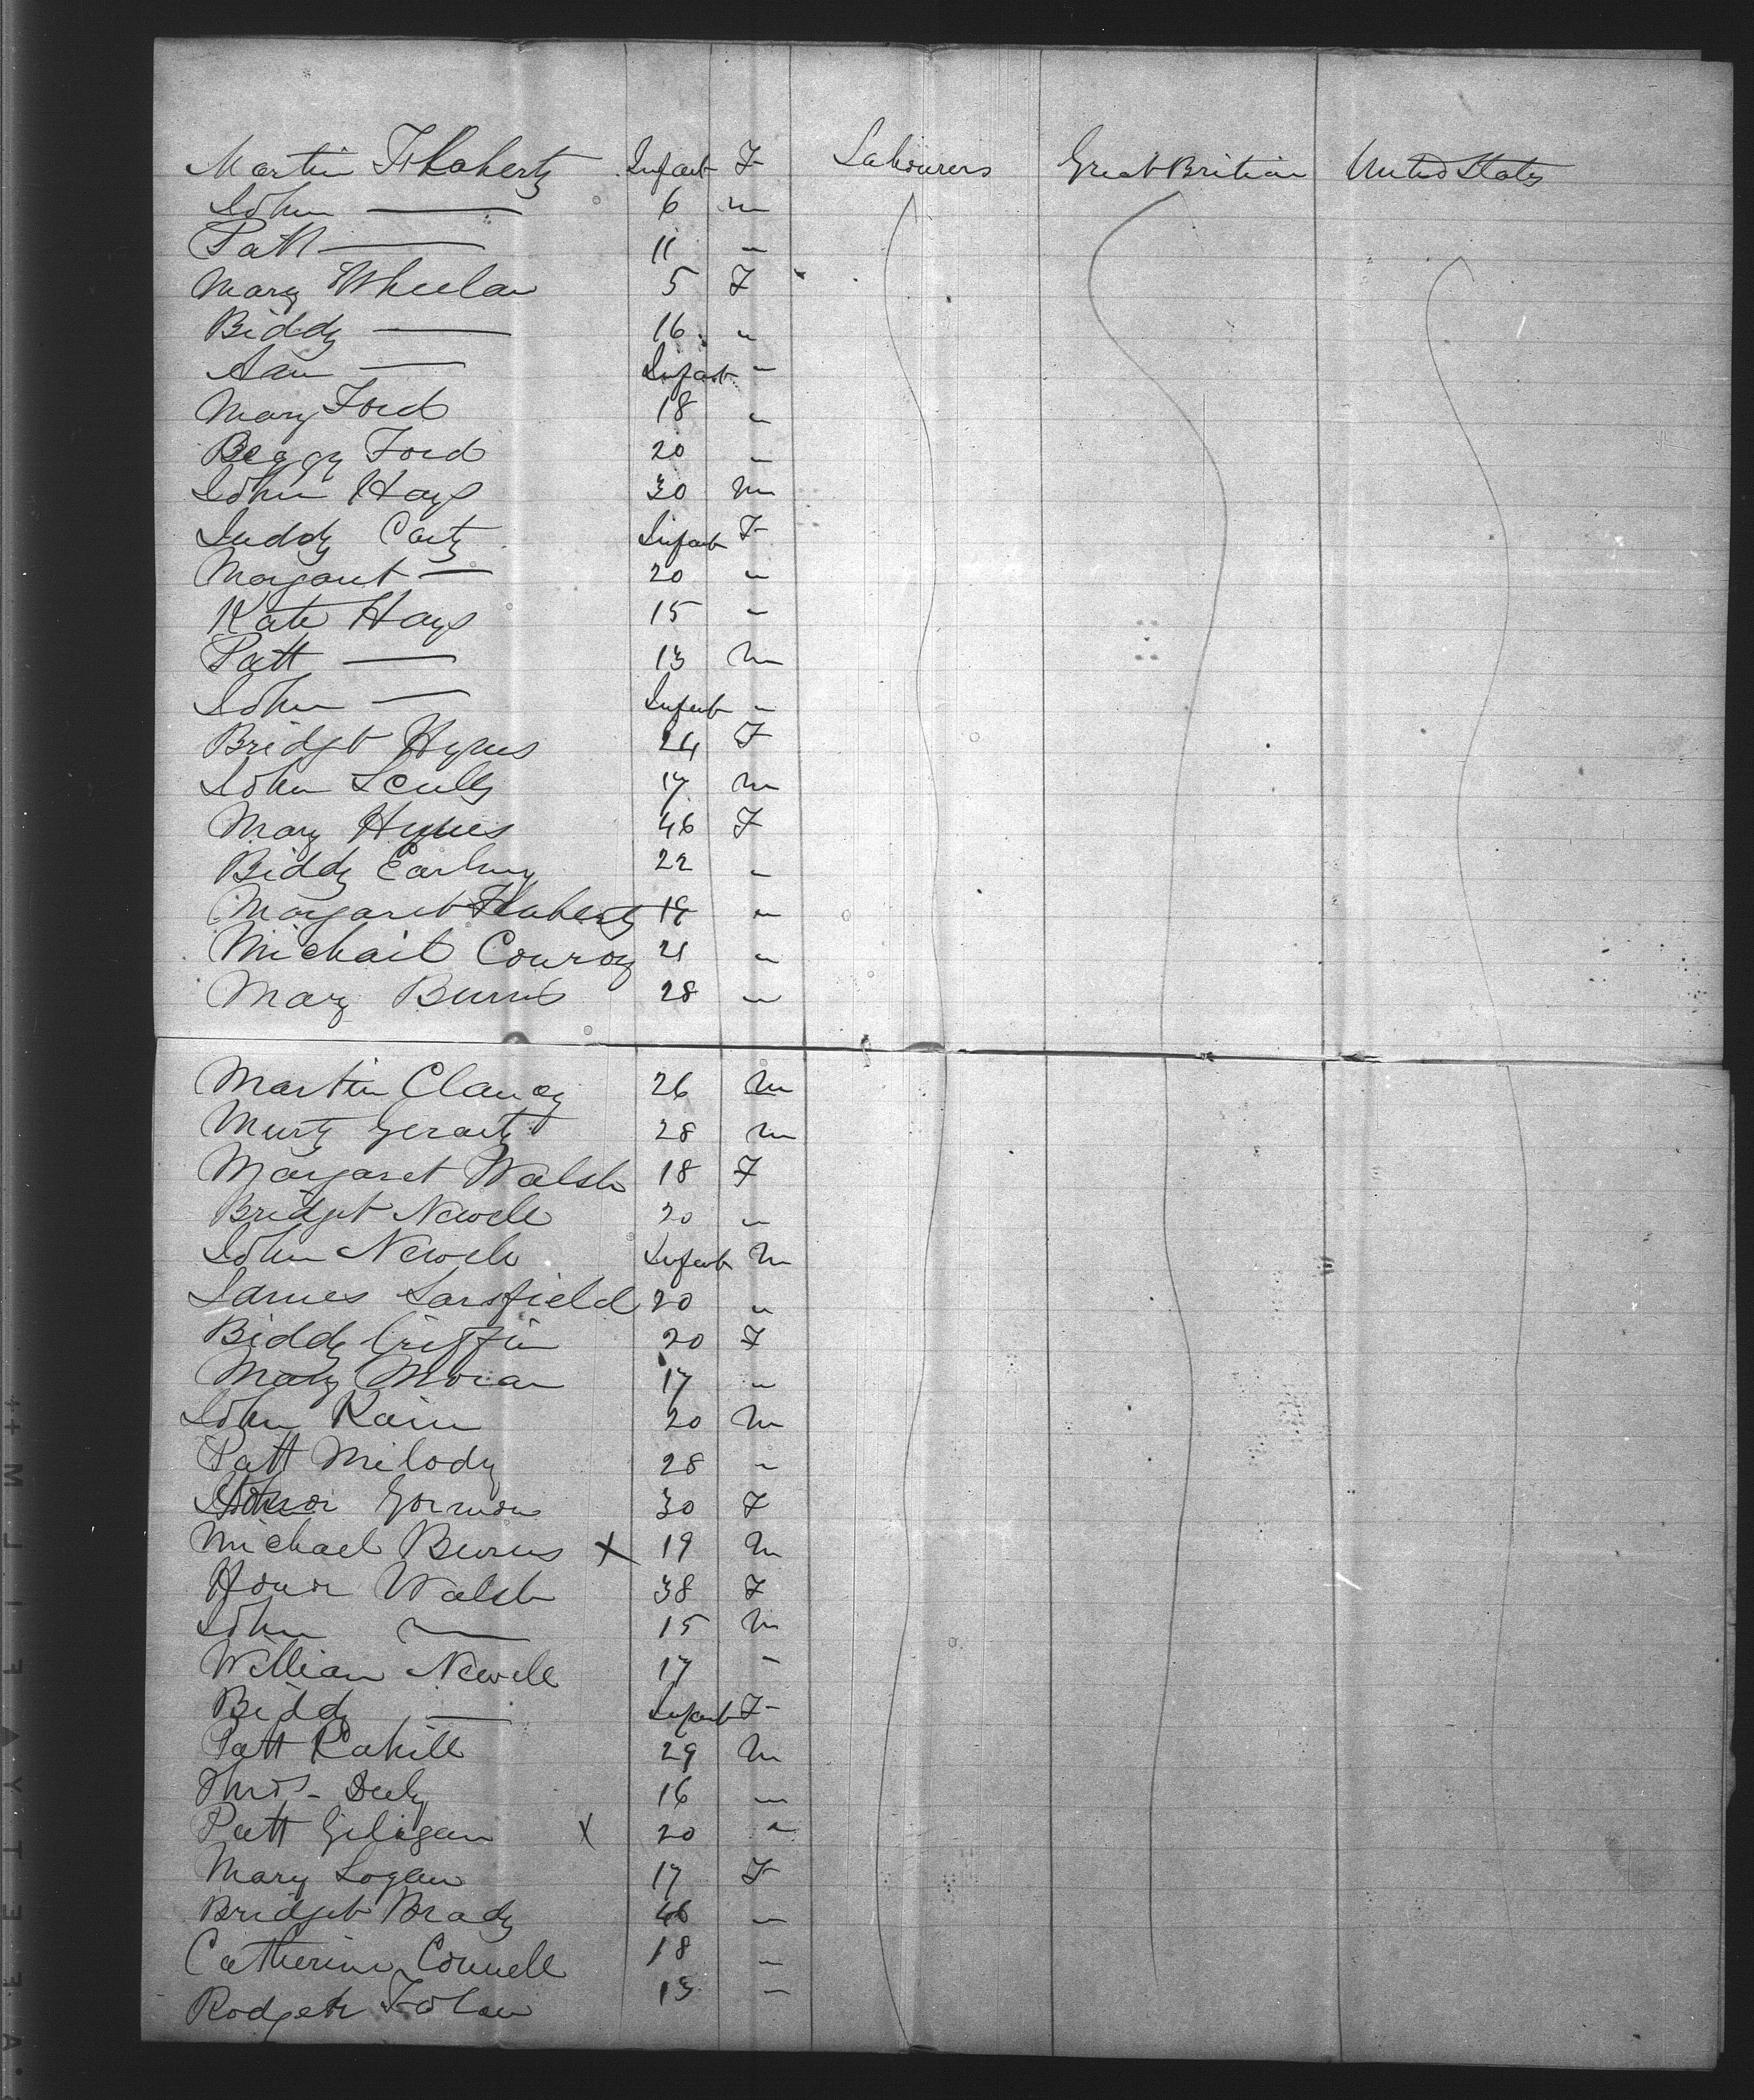 Martin Flaherty Infant F Labourers Great Britian United States
John — 6 m
Patt — 11 "
Mary Wheelan 5 F
Biddy — 16 "
Ann — Infant "
Mary Ford 18 "
Peggy Ford 20 "
John Hays 30 m
Juddy Carty Infant F
Margaret — 20 "
Kate Hays 15 "
Patt — 13 m
John — Infant "
Bridget Hynes 24 F
John Scully 17 m
Mary Hynes 46 F
Biddy 22 "
Margaret Flaherty 19 "
Michail Conroy 21 "
Mary Burns 28 "
Martin Clancy 26 m
Murty Geraty 28 m
Margaret Walsh 18 F
Bridget Newell 20 "
John Newell Infant m
James Sarsfield 20 "
Biddy Griffin 20 F
Mary Moran 17 "
John Kain 20 m
Patt Milody 28 "
Gorman 30 F
Michael Burns X 19 m
Honor Walsh 38 F
John — 15 m
William Newell 17 "
Biddy — Infant F
Patt Cahill 29 m
Thos. Duly 16 "
Patt Giligan X 20 "
Mary Logan 17 F
Bridget Brady 46 "
Catherine Connell 18 "
Rodger Folan 13 "